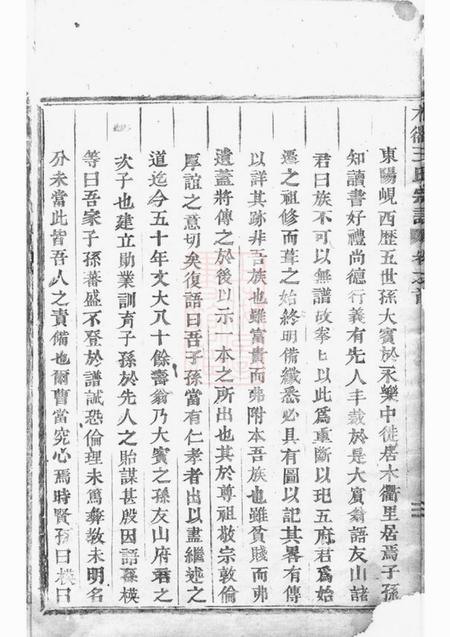 木衢王氏宗譜 卷之首
東陽峴西歷五世孫大賓於永樂中徙居木衢里居焉子孫
知讀書好禮尚德行義有先人丰裁於是大賓翁語友山諸
君曰族不可以無譜故拳匕以此爲重斷以玘五府君爲始
遷之祖修而葺之始終明備纖悉必具有圖以記其畧有傳
以詳其跡非吾族也雖富貴而弗附本吾族也雖貧賤而弗
遺蓋將傳之於後以示 本之所出也其於尊祖敬宗敦倫
厚誼之意切矣復語曰吾子孫當有仁孝者出以盡繼述之
道迄今五十年文大凡十餘壽翁乃大賓之孫友山府君之
次子也建立助業訓育子孫於先人之貽謀甚殷因語 樸
等曰吾家子孫蕃盛不登於譜誠恐倫理未篤彝教未明名
分未當此皆吾人之責備也爾曹當究心焉時賢 曰樸曰